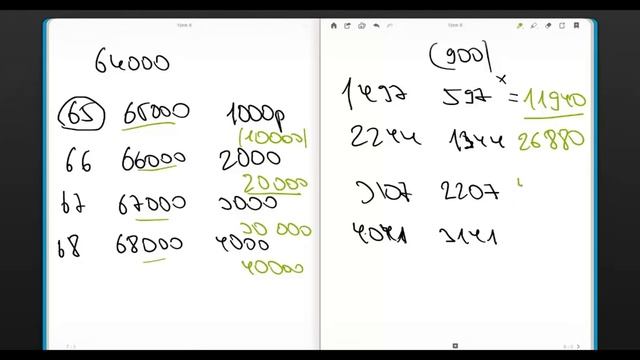 64000
65 65000 1000р
(10000)
66 66000 2000
20000
67 67000 3000
30 000
68 68000 4000
40000
(900)
1497 597 × = 11940
2244 1344 26880
3107 2207
4041 3141